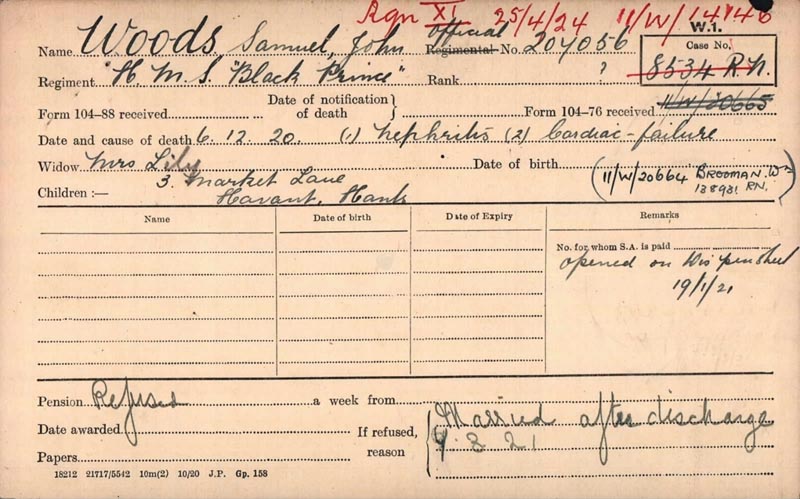 Rgn XI 25/4/24 11/W/14746
W.1.
Name Woods Samuel, John Official Regimental No. 204056
Case No.
8534 R.N.
Regiment "H.M.S. "Black Prince" Rank ?
11/W/20665
Form 104-88 received Date of notification of death Form 104-76 received
Date and cause of death 6.12.20. (1) Nephritis (2) Cardiac-failure
Widow Mrs Lily Date of birth
(11/W/20664 BROOMAN. W
138931 RN.)
3. Market Lane
Children :—
Havant, Hants
Name Date of birth Date of Expiry Remarks
No. for whom S.A. is paid
opened on Dis pen sheet
19/1/21
Pension Refused a week from
Date awarded
If refused, reason Married after discharge
4.3.21
Papers
18212 21717/5542 10m(2) 10/20 J.P. Gp. 158